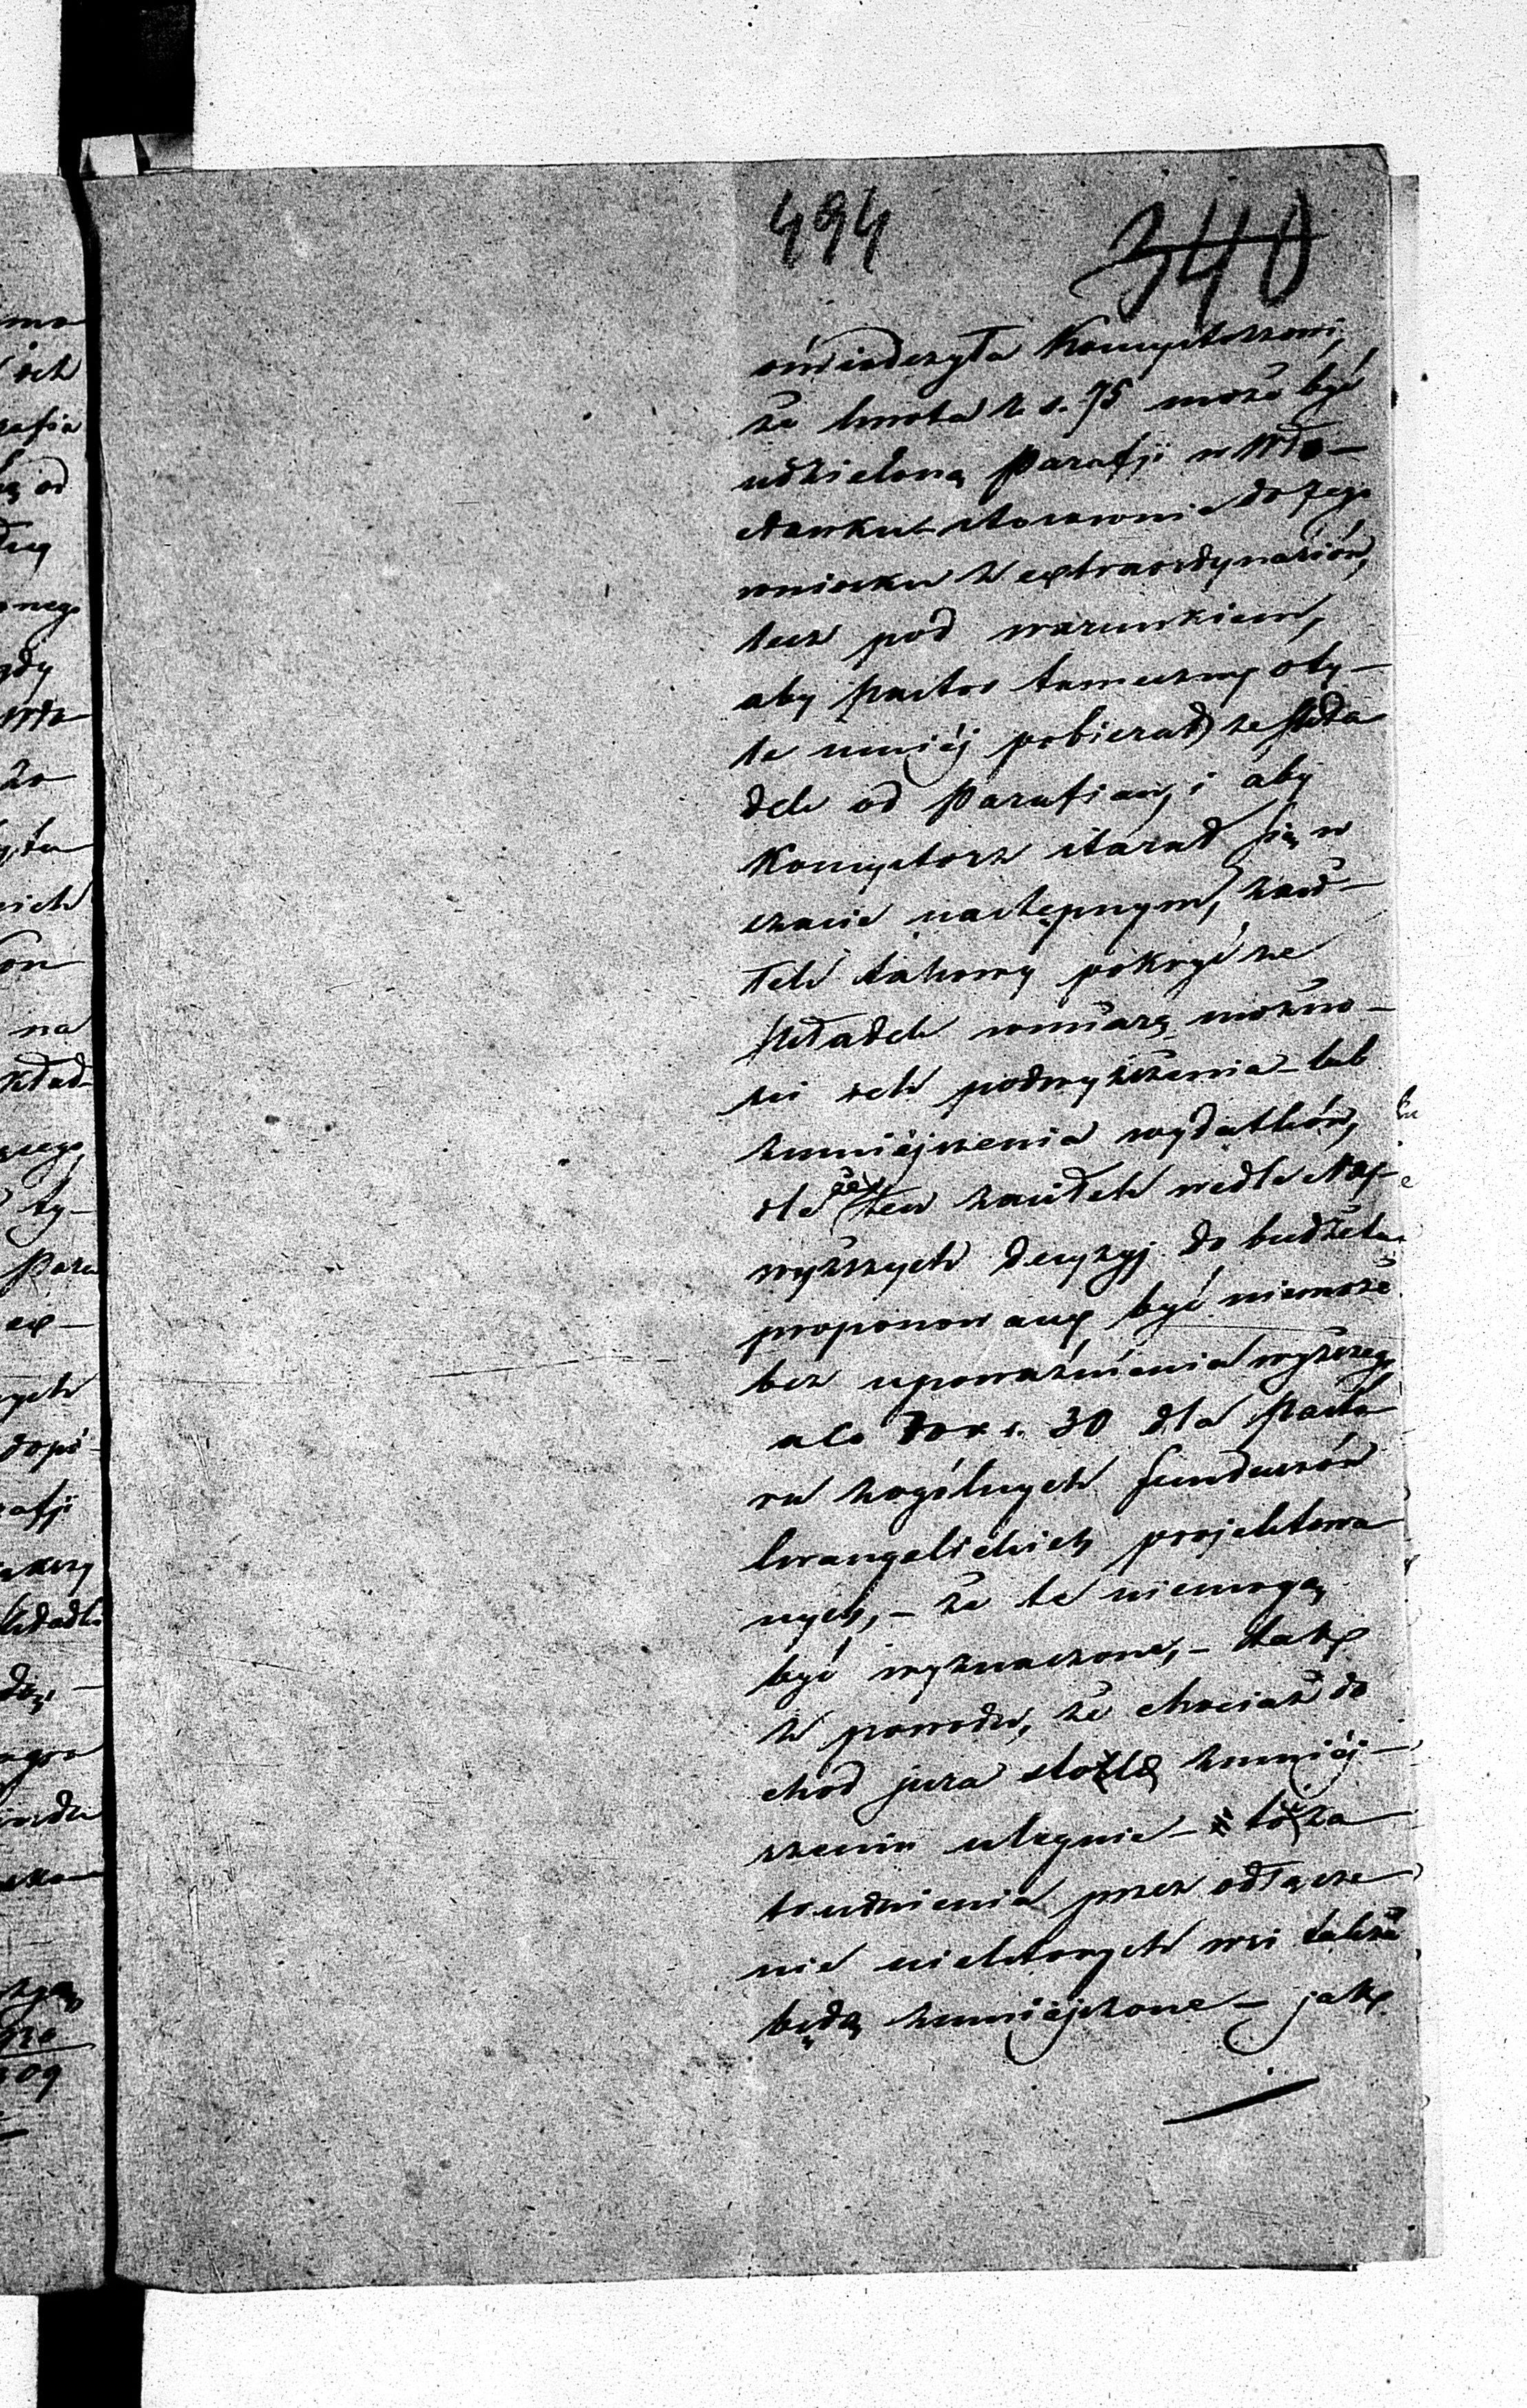 494
340
oświadczyła Konsystorzowi,
że kwota r. s. 75 może być
udzieloną Parafji w Wło-
dawku stosownie do jego
wniosku z extraordynariów,
lecz pod warunkiem,
aby pastor tameczny oty-
le mniej pobierał ze skła
dek od Parafian, i aby
Konsystorz starał się w
czasie następnym, zasi-
łek takowy pokryć ze
składek w miarę możno-
ści ich podwyższenia lub
zmniejszenia wydatków,
że ten zasiłek wedle Naj-
wyższych decyzyj do budżetu
proponowany być niemoże
bez upoważnienia wyższego,
a co do r. s. 30 dla Pasto
ra z ogólnych funduszów
Ewangelickich projektowa
nych, – że te niemogą
być wyznaczone, – tak
z powodu, że chociaż do
chód jura stolæ zmniej-
szeniu ulegnie – to za
trudnienia przez odłącze
nie niektórych wsi także
będą zmniejszone – jak